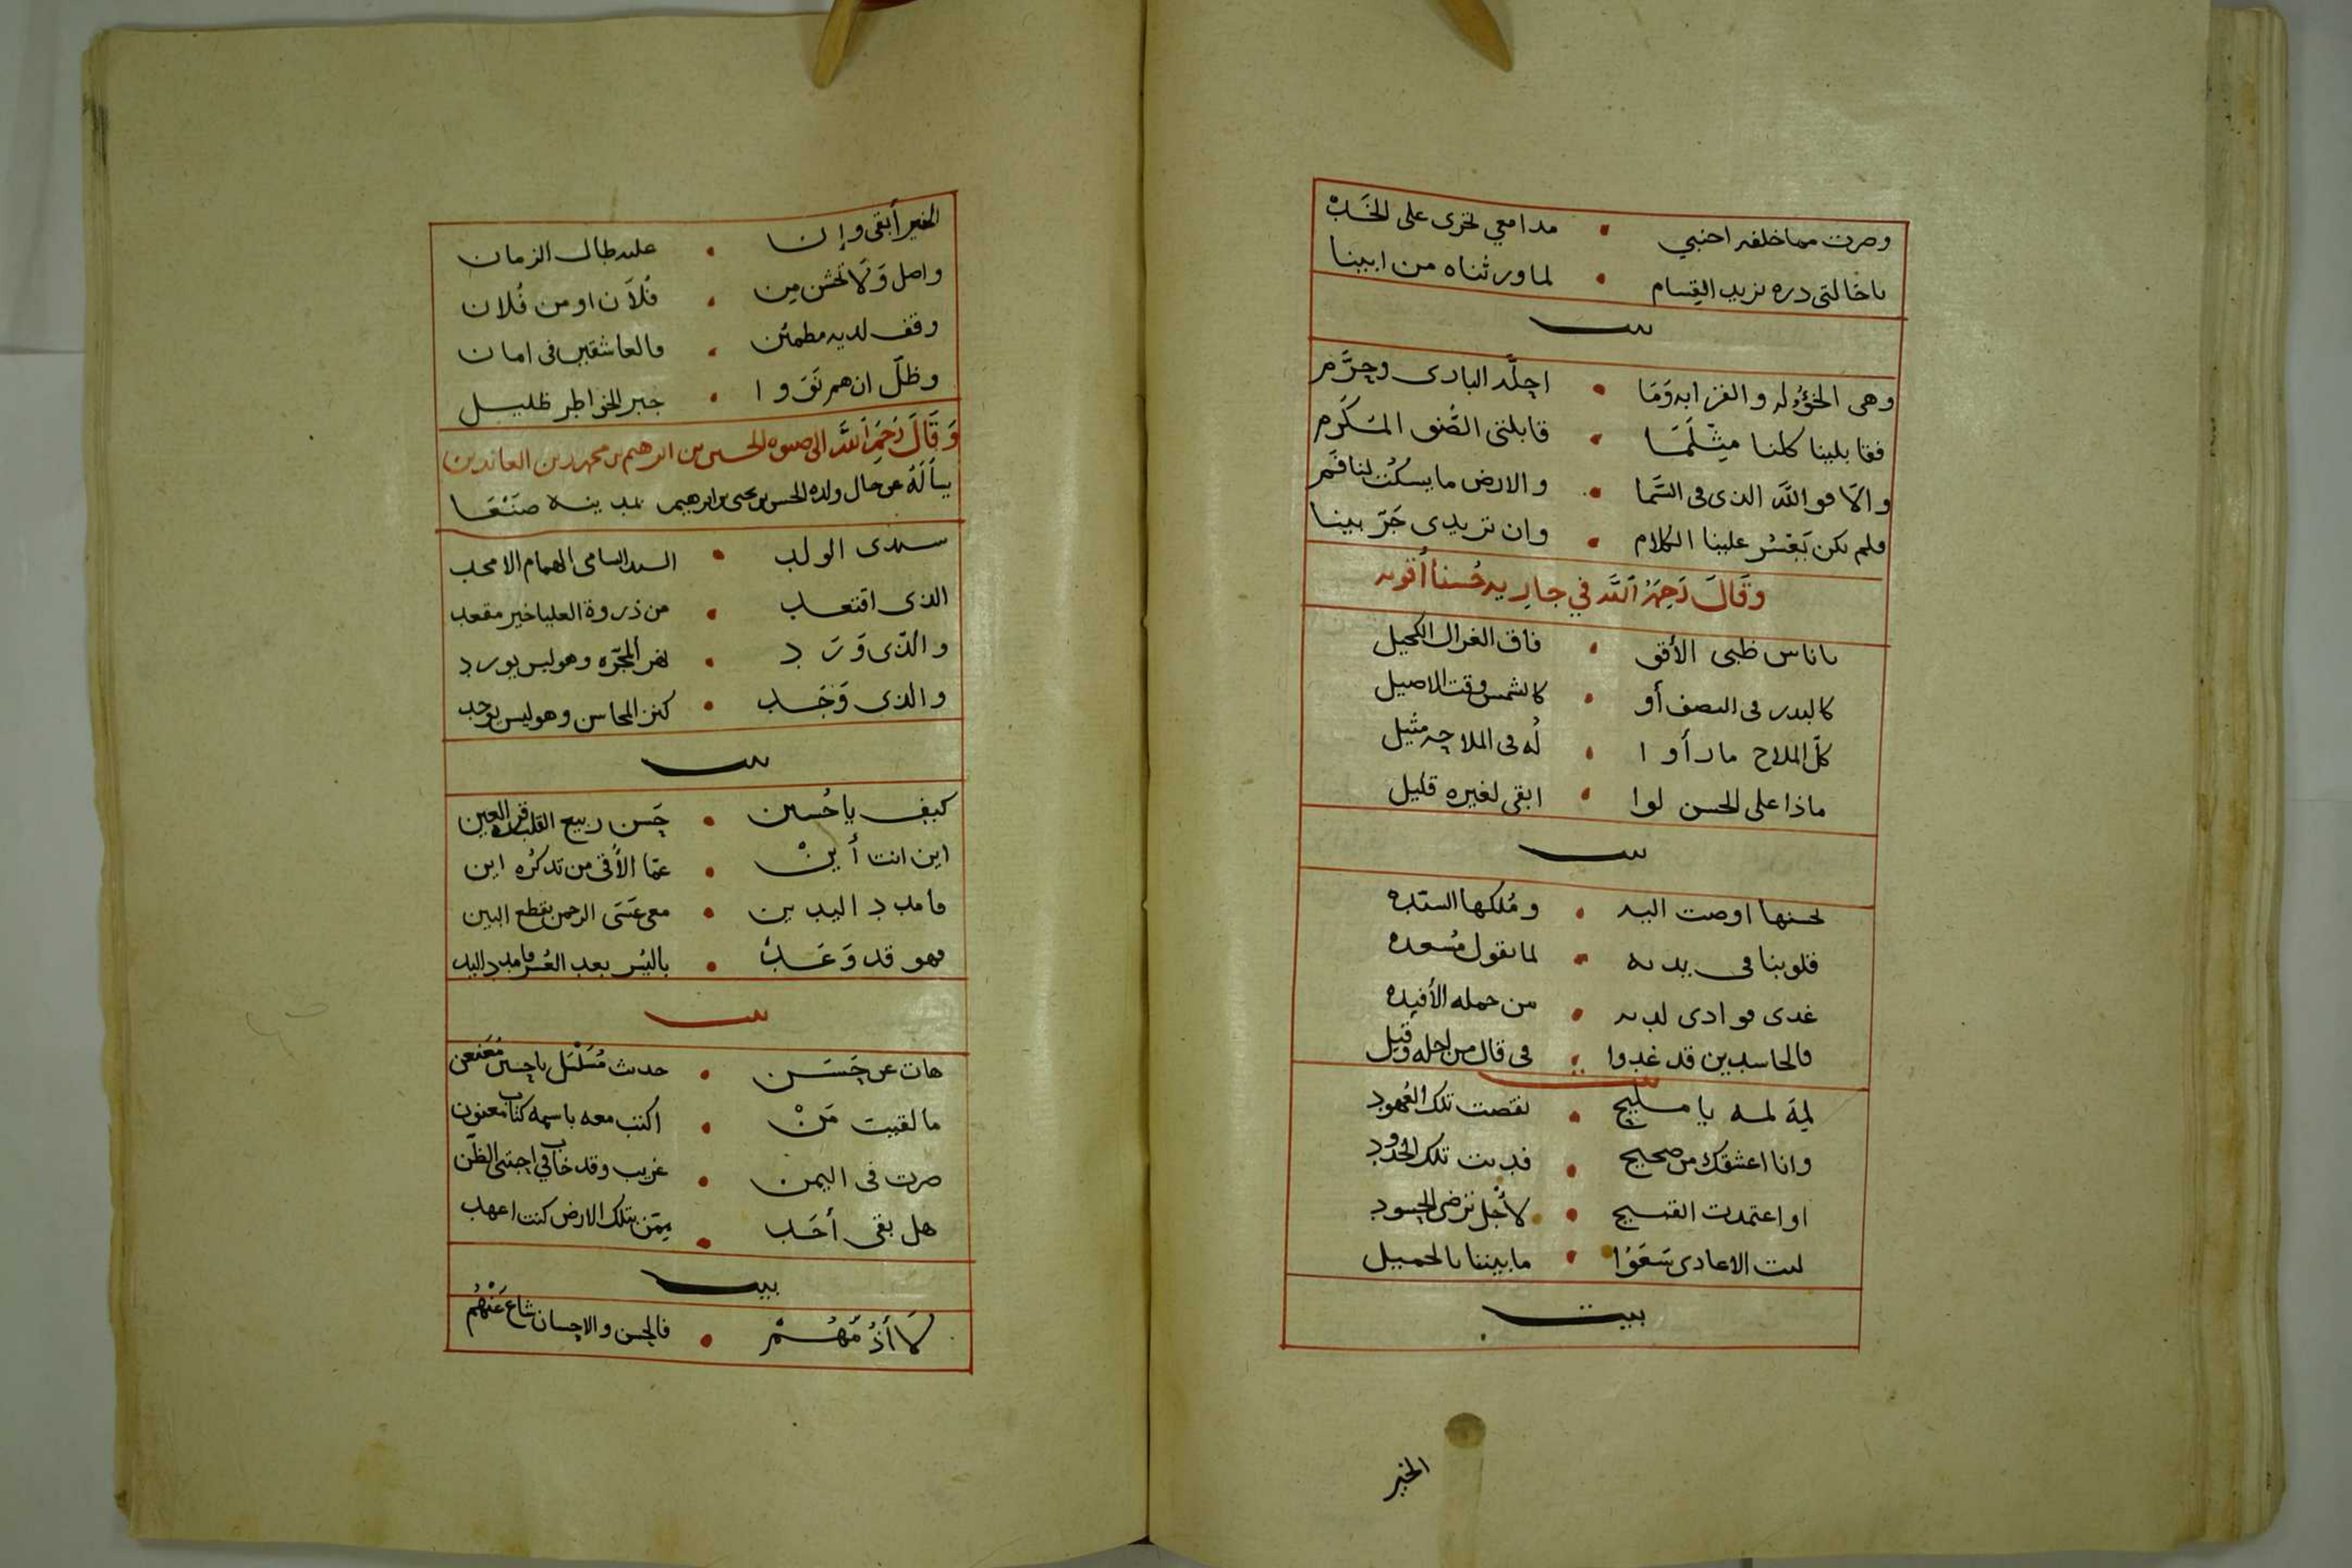 وصرت مما خلفه اجنبي • مدامعي تجرى على الخد
يا خالتى دره نريد القسام • لما ورثناه من ابينا
بيت
وهى الخؤله والقرابه وما • اجلّه البارى وحرّم
فقابلينا كلنا مثلما • قابلتى الصنو المكرم
والا فو الله الذى فى السما • والارض ما يسكت لنا فم
ولم يكن يعسر علينا الكلام • وان تريدى جرّ بينا
وقال رحمه الله في جاريه حسنا
يا ناس ظبى الأفق • فاق الغزال الكحيل
كالبدر فى النصف أو • كالشمس وقت الاصيل
كلّ الملاح ما رأوا • له فى الملاحه مثيل
ماذا على الحسن لوا • ابقى لغيره قليل
بيت
لحسنها اوصت اليه • وملكها السيده
قلوبنا فى يديه • لما نقول مسعده
غدى فوادى لديه • من جمله الأفيده
فالحاسدين قد غدوا • فى قال من اجله وقيل
بيت
لمه لمه يا مليح • نقصت تلك العهود
وانا اعشقك من صحيح • فديت تلك الخدود
او اعتمدت القبيح • لأجل ترضى الحسود
ليت الاعادى سعوا • ما بيننا بالجميل
بيت
الخير
الخير أبقى وإن • عليه طال الزمان
واصل ولا تخش من • فلان او من فلان
وقف لديه مطمئن • والعاشقين فى امان
وظلّ ان هم نووا • جبر الخواطر ظليل
وقال رحمه الله الى صنوه الحسين بن ابرهيم بن محمد زين العابدين
يسأله عن حال ولده الحسن بن يحيى بن ابرهيم بمدينه صنعا
سيدى الولد • السيد السامى الهمام الامجد
الذى اقتعد • من ذروة العليا خير مقعد
والذى ورد • نهر المجرّه وهو ليس يورد
والذى وجد • كنز المحاسن وهو ليس يوجد
بيت
كيف يا حسين • حسن ربيع القلب قرة العين
اين انت أين • عمّا الأقى من تذكره اين
فامدد اليدين • معى عسى الرحمن يقطع البين
فهو قد وعد • باليسر بعد العسر فامدد اليد
بيت
هات عن حسن • حديث مسلسل يا حسين معنعن
ما لقيت من • اكتب معه باسمه كتاب معنون
صرت فى اليمن • غريب وقد خاب في اجتنى الظن
هل بقى أحد • ممن بتلك الارض كنت اعهد
بيت
لا أذمهم • فالحسن والاحسان شاع عنهم